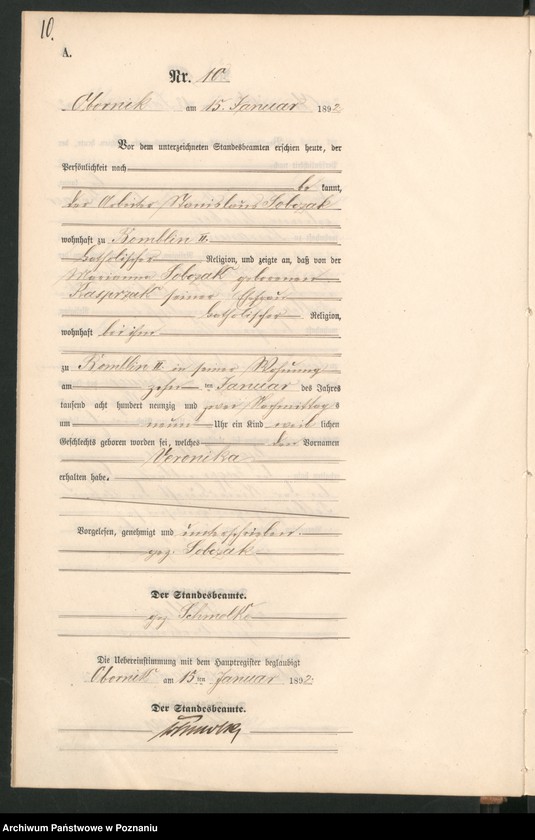 10.
A.
Nr. 10
Obornik am 15. Januar 1892
Vor dem unterzeichneten Standesbeamten erschien heute, der
Persönlichkeit nach
be kannt,
der Arbeiter Stanislaus Sobczak
wohnhaft zu II.
katholischer Religion, und zeigte an, daß von der
Marianna Sobczak geborenen
Kasprzak seiner Ehefrau
katholischer Religion,
wohnhaft bei ihm
zu II. in seiner Wohnung
am zehnten Januar des Jahres
tausend acht hundert neunzig und zwei Nachmittags
um neun Uhr ein Kind weib lichen
Geschlechts geboren worden sei, welches den Vornamen
Veronika
erhalten habe.
Vorgelesen, genehmigt und unterschrieben.
gez. Sobczak
Der Standesbeamte.
gez. Schmolke
Die Uebereinstimmung mit dem Hauptregister beglaubigt
Obornik am 15ten Januar 1892.
Der Standesbeamte.
Schmolke
Archiwum Państwowe w Poznaniu